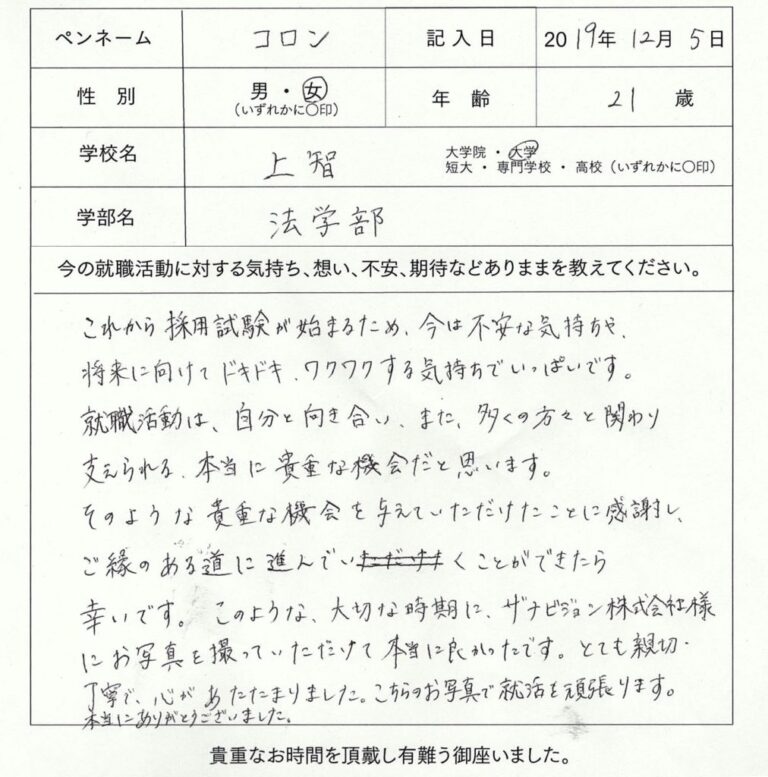 ペンネーム コロン 記入日 2019年 12月 5日
性 別 男・女 (いずれかに〇印) 年 齢 21 歳
学校名 上智 大学院 ・ 大学
短大 ・ 専門学校 ・ 高校 (いずれかに〇印)
学部名 法学部
今の就職活動に対する気持ち、想い、不安、期待などありままを教えてください。
これから採用試験が始まるため、今は不安な気持ちや、
将来に向けてドキドキ、ワクワクする気持ちでいっぱいです。
就職活動は、自分と向き合い、また、多くの方々と関わり
支えられる、本当に貴重な機会だと思います。
そのような貴重な機会を与えていただけたことに感謝し、
ご縁のある道に進んでいくことができたら
幸いです。このような、大切な時期に、ザナビジョン株式会社様
にお写真を撮っていただけて本当に良かったです。とても親切・
丁寧で、心があたたまりました。こちらのお写真で就活を頑張ります。
本当にありがとうございました。
貴重なお時間を頂戴し有難う御座いました。